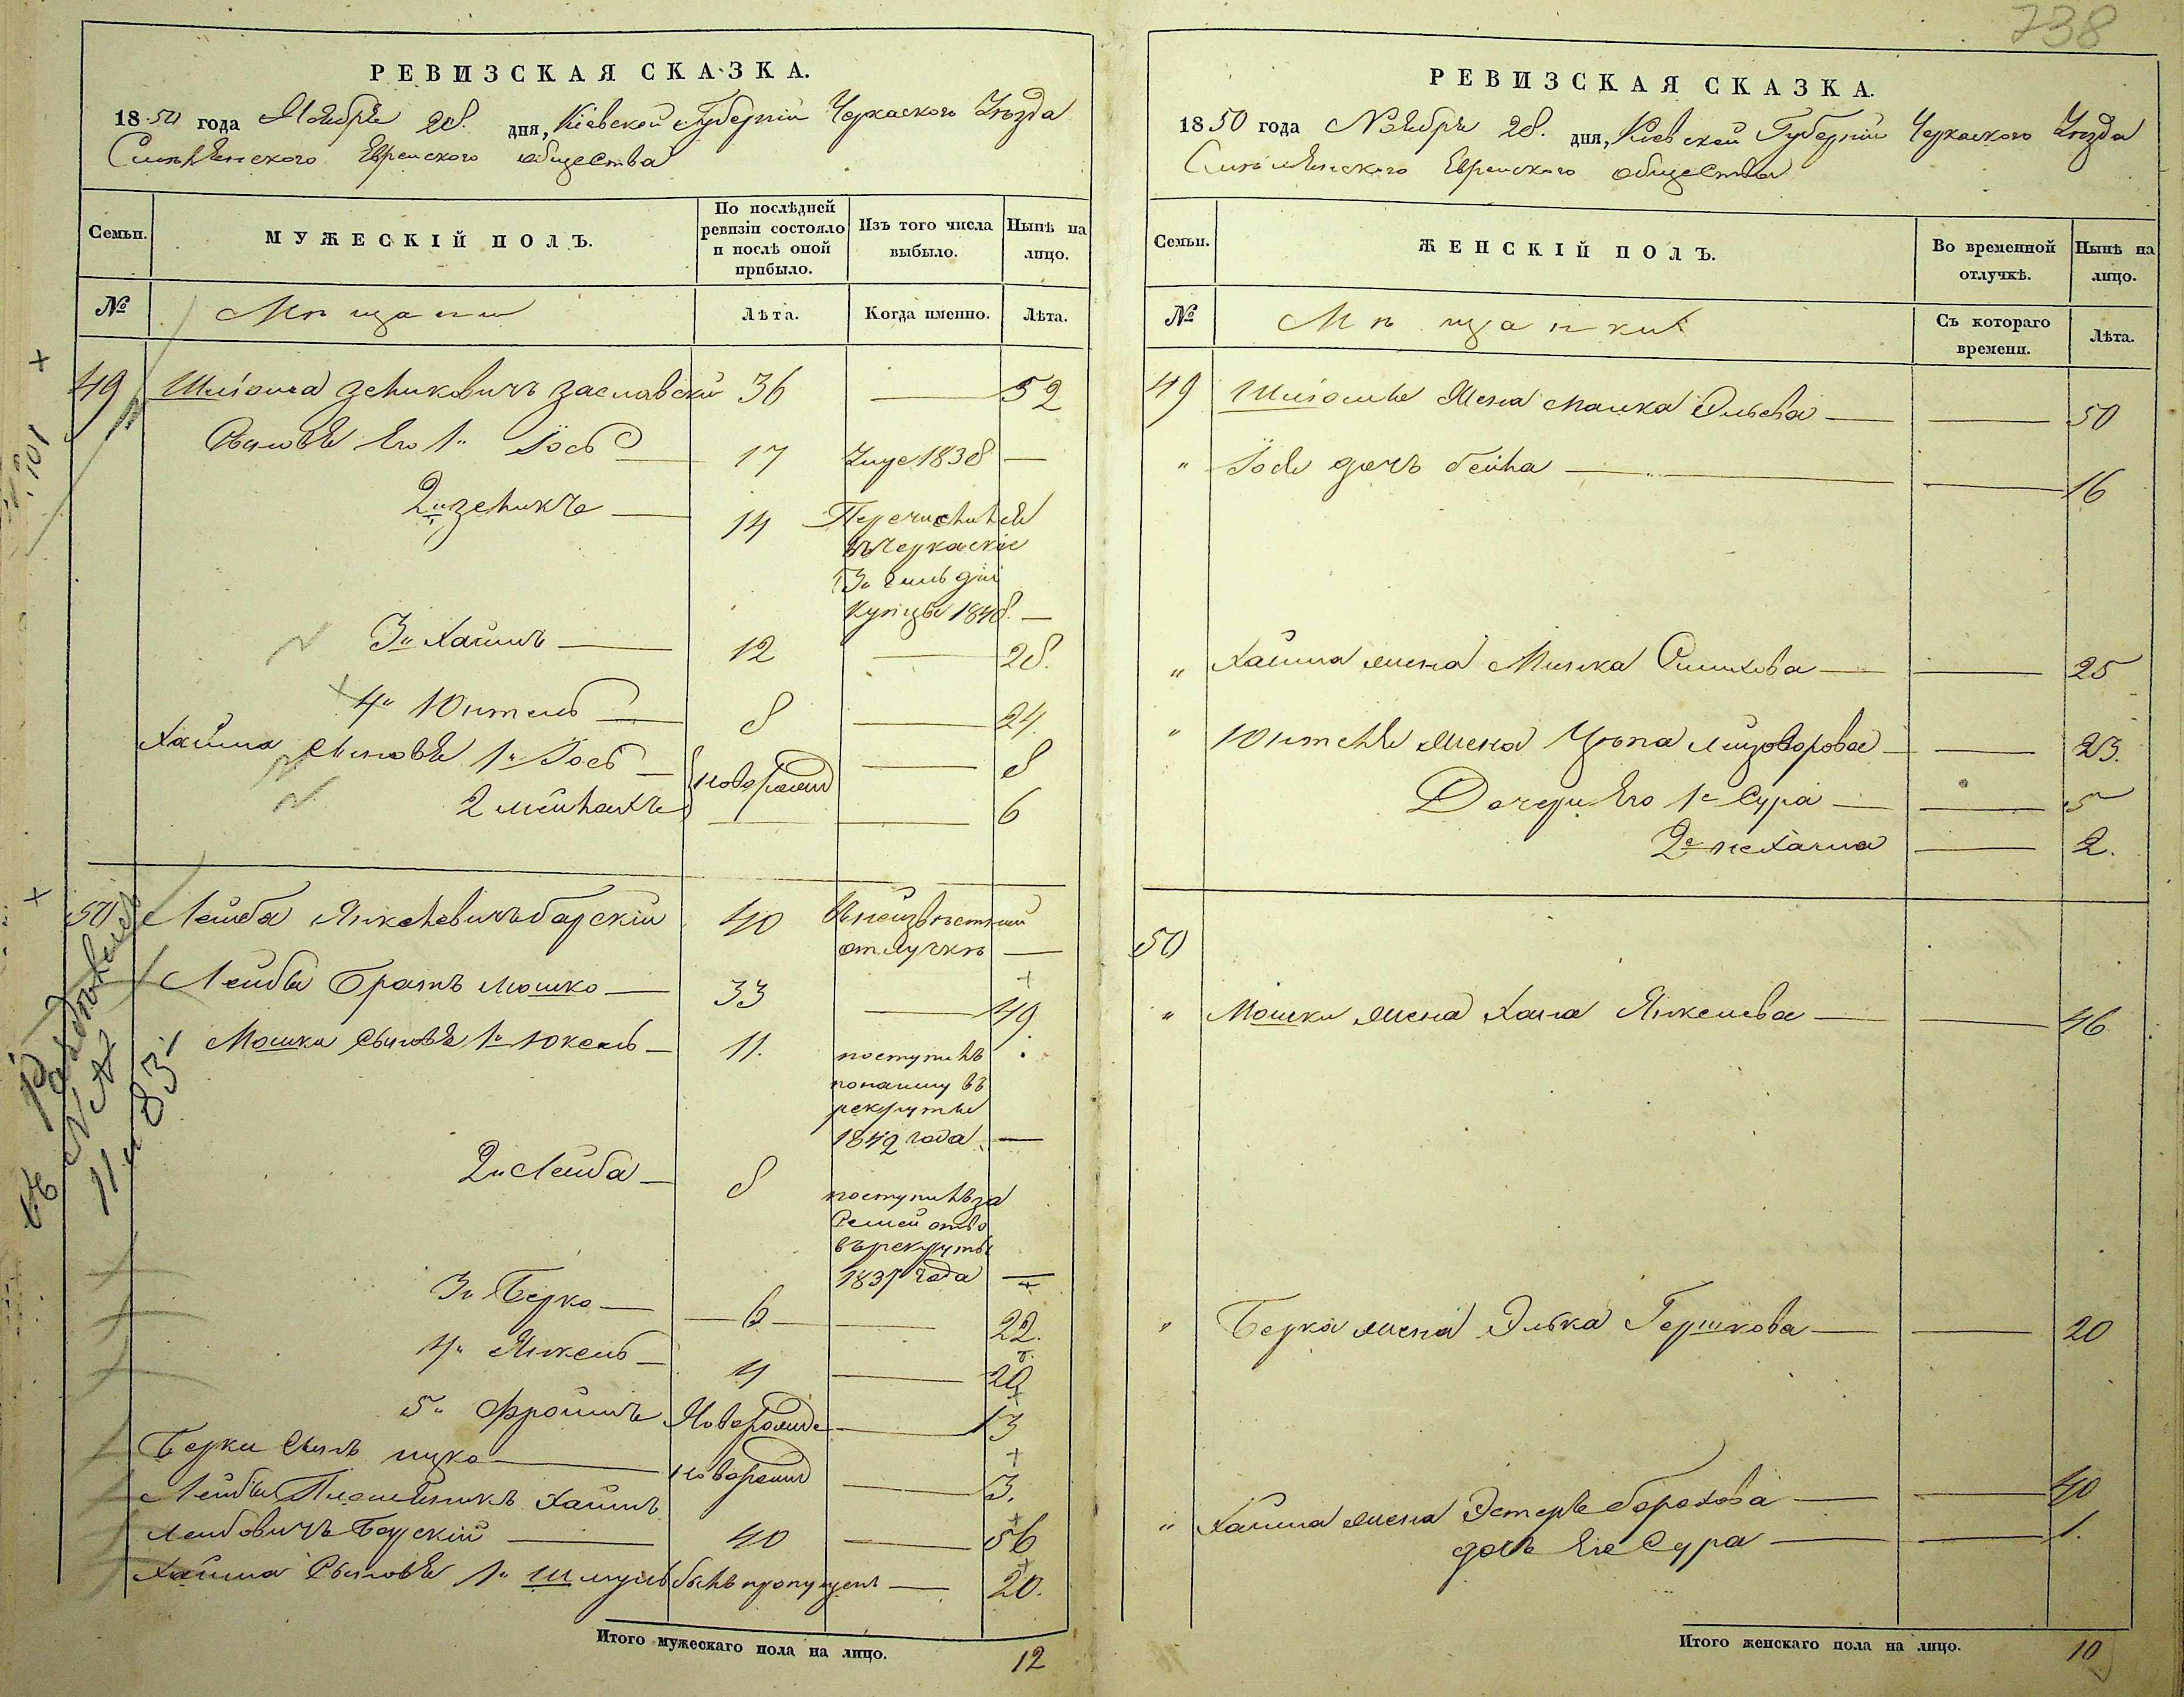 738
РЕВИЗСКАЯ СКАЗКА.
1850 года Ноября 28. дня, Кіевской Губерніи Черкаского Уѣзда
Смѣлянского Еврейского общества
Семьи.
МУЖЕСКІЙ ПОЛЪ.
По послѣдней ревизіи состояло и послѣ оной прибыло.
Изъ того числа выбыло.
Нынѣ на лицо.
№
Мѣщани
Лѣта.
Когда именно.
Лѣта.
49 Шліома Зельиковичъ Заславскій 36 — 52
Сыновья Его 1й Іось — 17 Умре 1838 —
2й Зельикъ — 14 Перечислился
въ Черкаскіе
3й гильдіи
Купцы 1848. —
3й Хаимъ — 12 — 28.
4й Юитель — 8 — 24.
Хаима Сыновья 1й Іось — новорожд — 8
2 Мейнахъ — 6
№ 101
50 Лейба Янкелевичъ Барскій 40 В неизвѣстной
отлучкѣ —
Лейбы Братъ Мошко — 33 — 49
Мошки Сыновья 1й Юкель — 11. поступилъ
по найму въ
рекруты
1842 года —
2й Лейба — 8 поступилъ за
Семейство
въ рекруты
1837 года —
3й Берко — 6 — 22.
4й Янкель — 4 — 20
5й Фроимъ Новорожде — 13
Берки Сынъ Ицко — новорожд — 3.
Лейбы Племянникъ Хаимъ
Лейбовичъ Барскій — 40 — 56
Хаима Сыновья 1й Шмуль былъ пропущенъ — 20.
11 и 83
Итого мужескаго пола на лицо. 12
РЕВИЗСКАЯ СКАЗКА.
1850 года Ноября 28. дня, Кіевской Губерніи Черкаского Уѣзда
Смѣлянского Еврейского общества
Семьи.
ЖЕНСКІЙ ПОЛЪ.
Во временной отлучкѣ.
Нынѣ на лицо.
№
Мѣщанки
Съ котораго времени.
Лѣта.
49 Шліомы Жена Малка Ольева — — 50
" Іося дочъ Бейла — — 16
" Хаима жена Минка — — 25
" Юителя жена Цѣпа — — 23.
Дочери Его 1я Сура — — 5
2я Нехама — 2.
50
" Мошки жена Хана Янкелева — — 46
" Берка жена Элька Гершкова — — 20
" Хаима жена Эстеръ Борохова — — 40
дочь Его Сура — — 1.
Итого женскаго пола на лицо. 10